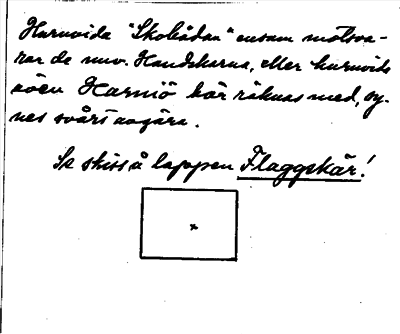 Huruvida "Skobådan" ensam motsva-
rar de nuv. Handskarna, eller huruvida
även Hamnö bär räknas med, sy-
nes svårt avgöra.
Se skiss å lappen Flaggskär!
x